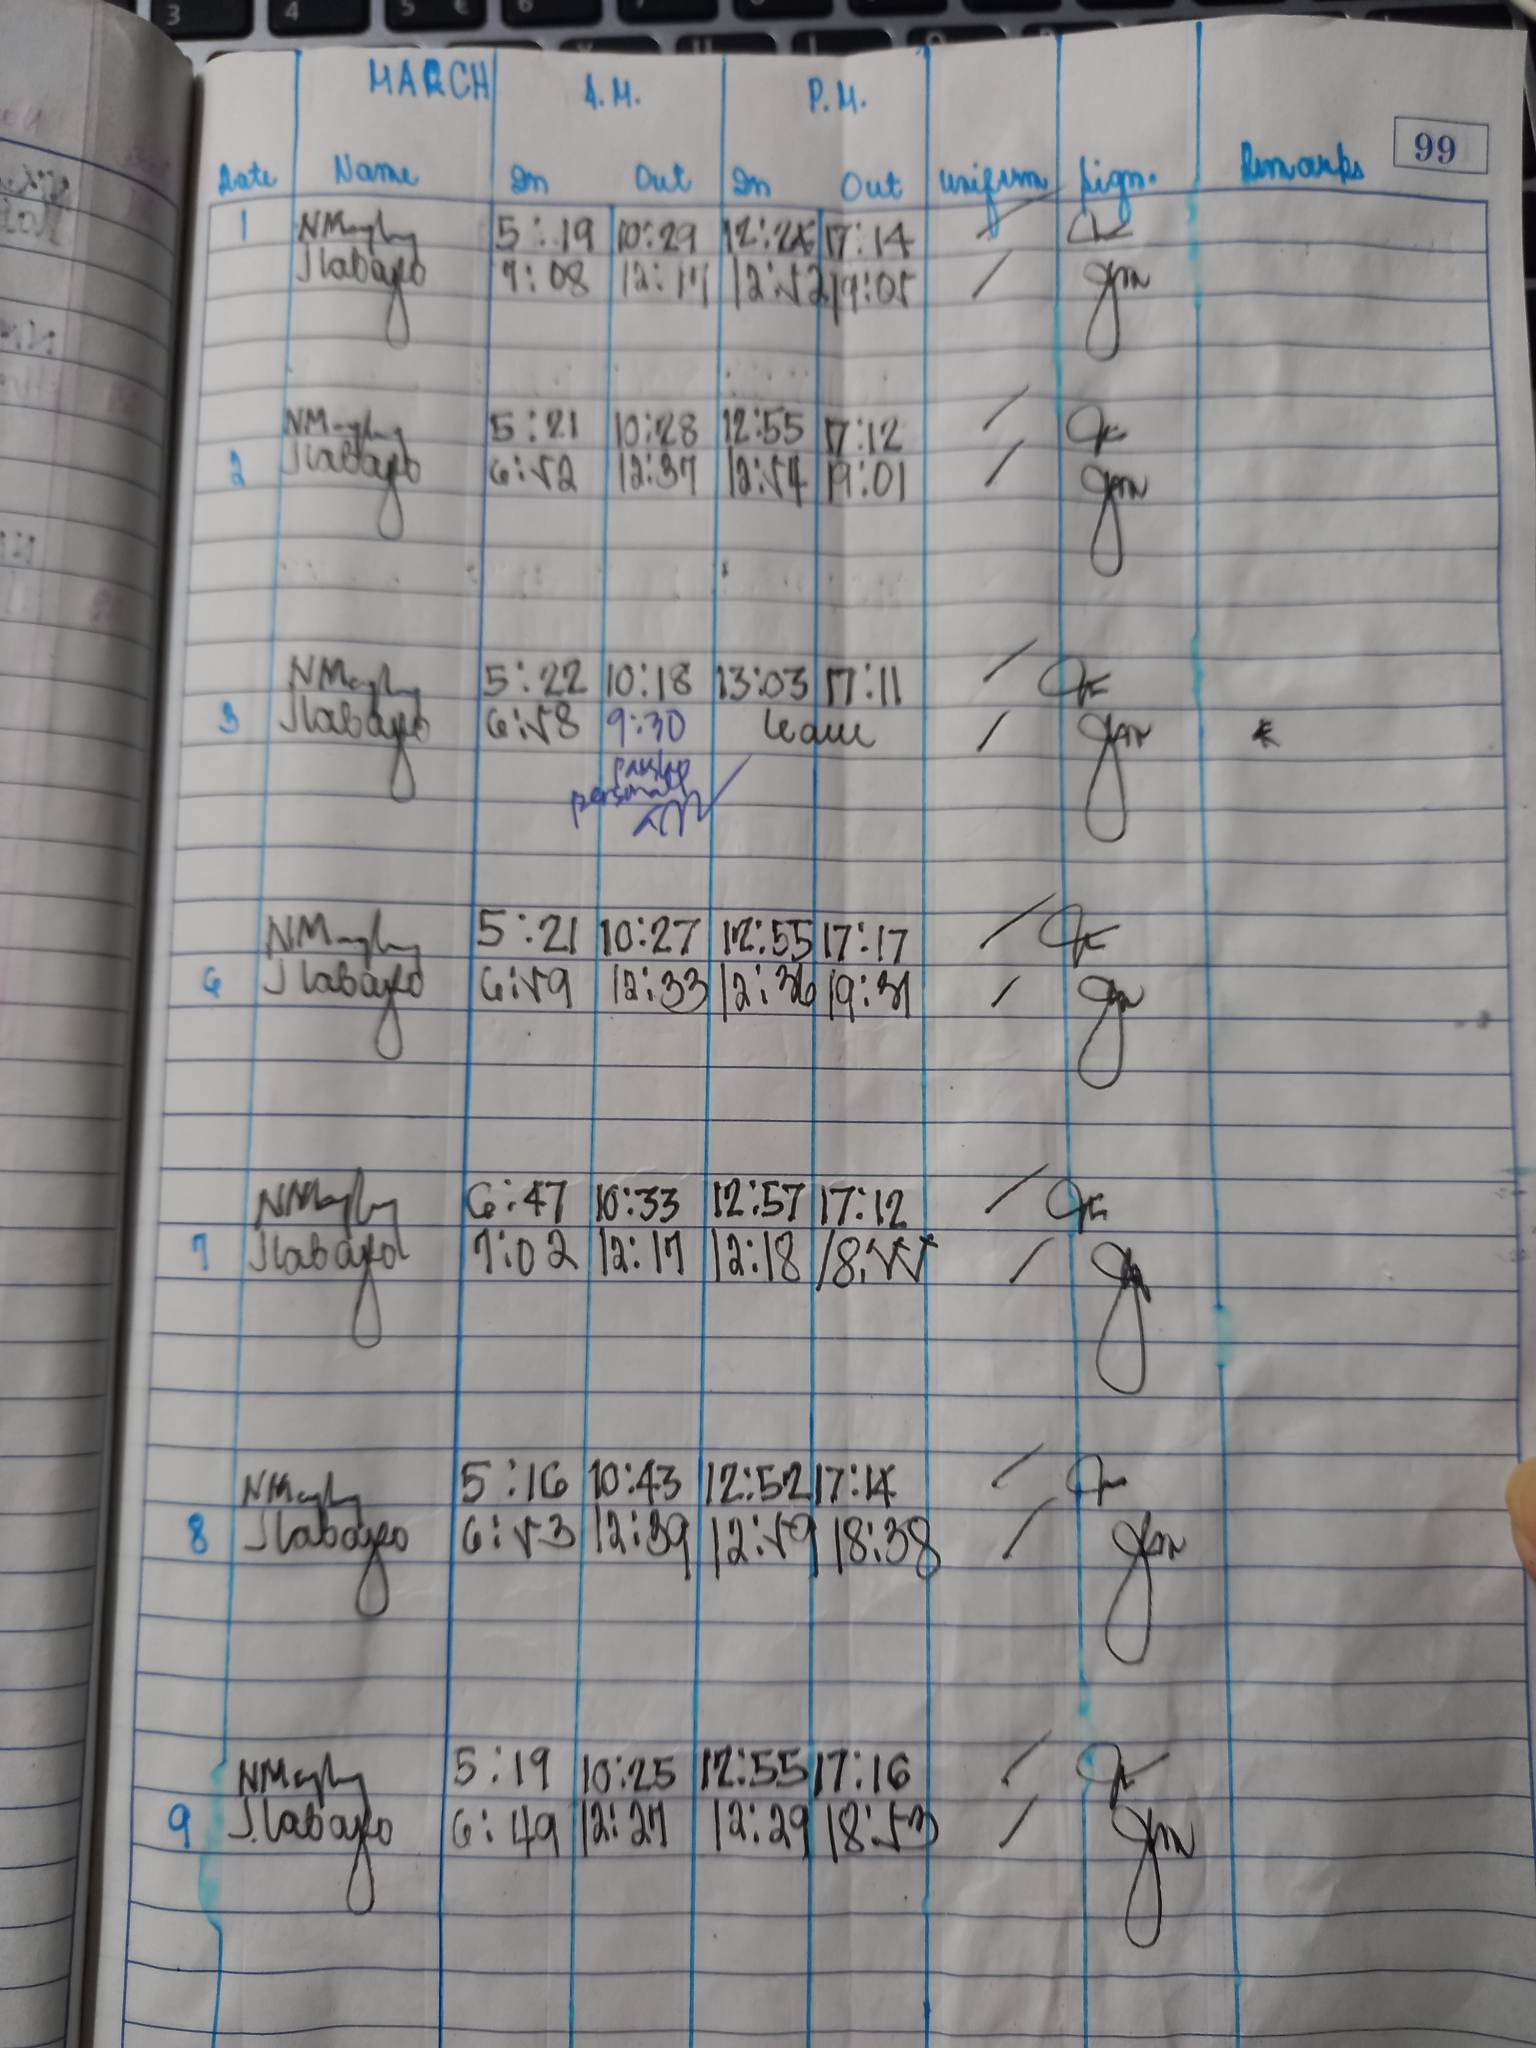 MARCH A.M. P.M.
99
Date Name In Out In Out Uniform Sign. Remarks
1 5:19 10:29 12:24 17:14 /
JLabayo 7:08 12:17 12:52 19:05 /
5:21 10:28 12:55 17:12 /
2 JLabayo 6:52 12:37 12:54 19:01 /
5:22 10:18 13:03 17:11 /
3 JLabayo 6:58 9:30 leave / *
personal
5:21 10:27 12:55 17:17 /
6 JLabayo 6:59 12:33 12:36 19:31 /
6:47 10:33 12:57 17:12 /
7 JLabayo 7:02 12:17 12:18 18:55 /
5:16 10:43 12:52 17:14 /
8 JLabayo 6:53 12:39 12:59 18:38 /
5:19 10:25 12:55 17:16 /
9 J.Labayo 6:49 12:27 12:29 18:53 /